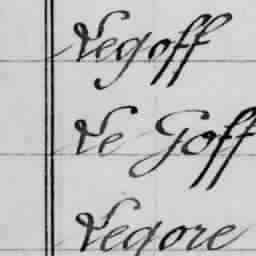 Legoff
Le Goff
Legore